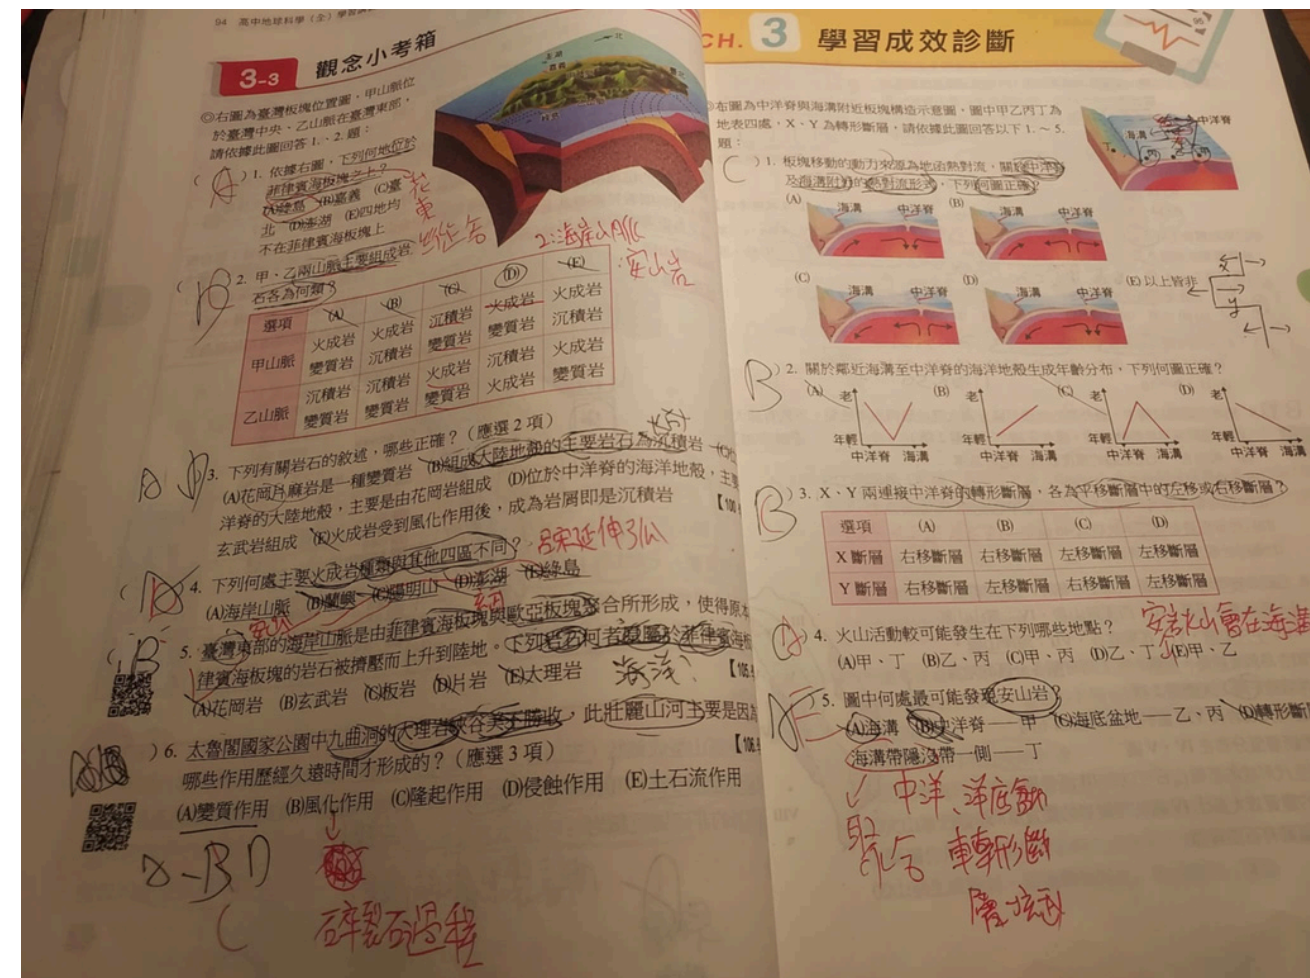 94 高中地球科學（全）學習講
3-3 觀念小考箱
◎右圖為臺灣板塊位置圖，甲山脈位
於臺灣中央、乙山脈在臺灣東部，
請依據此圖回答1.、2.題：
( A )1. 依據右圖，下列何地位於
菲律賓海板塊之上？
(A)綠島 (B)嘉義 (C)臺
北 (D)澎湖 (E)四地均
不在菲律賓海板塊上
花東
北
2:海岸山脈
:安山岩
( D 2. 甲、乙兩山脈主要組成岩
石各為何類？
選項 (A) (B) (C) (D) (E)
甲山脈 火成岩 變質岩 火成岩 沉積岩 沉積岩 變質岩 火成岩 變質岩 火成岩 沉積岩
乙山脈 沉積岩 變質岩 沉積岩 變質岩 火成岩 變質岩 沉積岩 火成岩 火成岩 變質岩
A D 3. 下列有關岩石的敘述，哪些正確？（應選2項）
(A)花岡片麻岩是一種變質岩 (B)組成大陸地殼的主要岩石為沉積岩
洋脊的大陸地殼，主要是由花岡岩組成 (D)位於中洋脊的海洋地殼，主要
玄武岩組成 (E)火成岩受到風化作用後，成為岩屑即是沉積岩 【100
( D 4. 下列何處主要火成岩種類與其他四區不同？ 呂宋延伸引瓜
(A)海岸山脈 (B)蘭嶼 (C)陽明山 (D)澎湖 (E)綠島
安山
( B 5. 臺灣東部的海岸山脈是由菲律賓海板塊與歐亞板塊聚合所形成，使得原本
律賓海板塊的岩石被擠壓而上升到陸地。下列岩石何者最屬於菲律賓海板
(A)花岡岩 (B)玄武岩 (C)板岩 (D)片岩 (E)大理岩 海淺？ 【105.
)6. 太魯閣國家公園中九曲洞的大理岩峽谷美不勝收，此壯麗山河主要是因為
哪些作用歷經久遠時間才形成的？（應選3項） 【106.
(A)變質作用 (B)風化作用 (C)隆起作用 (D)侵蝕作用 (E)土石流作用
A-BD
C
碎裂石過程
CH. 3 學習成效診斷
◎右圖為中洋脊與海溝附近板塊構造示意圖，圖中甲乙丙丁為
地表四處，X、Y為轉形斷層，請依據此圖回答以下1.～5.
題：
海溝 中洋脊
( C )1. 板塊移動的動力來原為地函熱對流，關於中洋脊
及海溝附近的熱對流形式，下列何圖正確？
(A) 海溝 中洋脊 (B) 海溝 中洋脊
(C) 海溝 中洋脊 (D) 海溝 中洋脊 (E)以上皆非
x
y
B )2. 關於鄰近海溝至中洋脊的海洋地殼生成年齡分布，下列何圖正確？
(A) (B) (C) (D)
老 老 老 老
年輕 年輕 年輕 年輕
中洋脊 海溝 中洋脊 海溝 中洋脊 海溝 中洋脊 海溝
B )3. X、Y兩連接中洋脊的轉形斷層，各為平移斷層中的左移或右移斷層？
選項 (A) (B) (C) (D)
X 斷層 右移斷層 右移斷層 左移斷層 左移斷層
Y 斷層 右移斷層 左移斷層 右移斷層 左移斷層
安岩火山會在海溝
(A) 4. 火山活動較可能發生在下列哪些地點？
(A)甲、丁 (B)乙、丙 (C)甲、丙 (D)乙、丁 (E)甲、乙
E 5. 圖中何處最可能發現安山岩？
(A)海溝 (B)中洋脊——甲 (C)海底盆地——乙、丙 (D)轉形斷層
海溝帶隱沒帶一側——丁
中洋、洋底盆
聚合 轉形斷